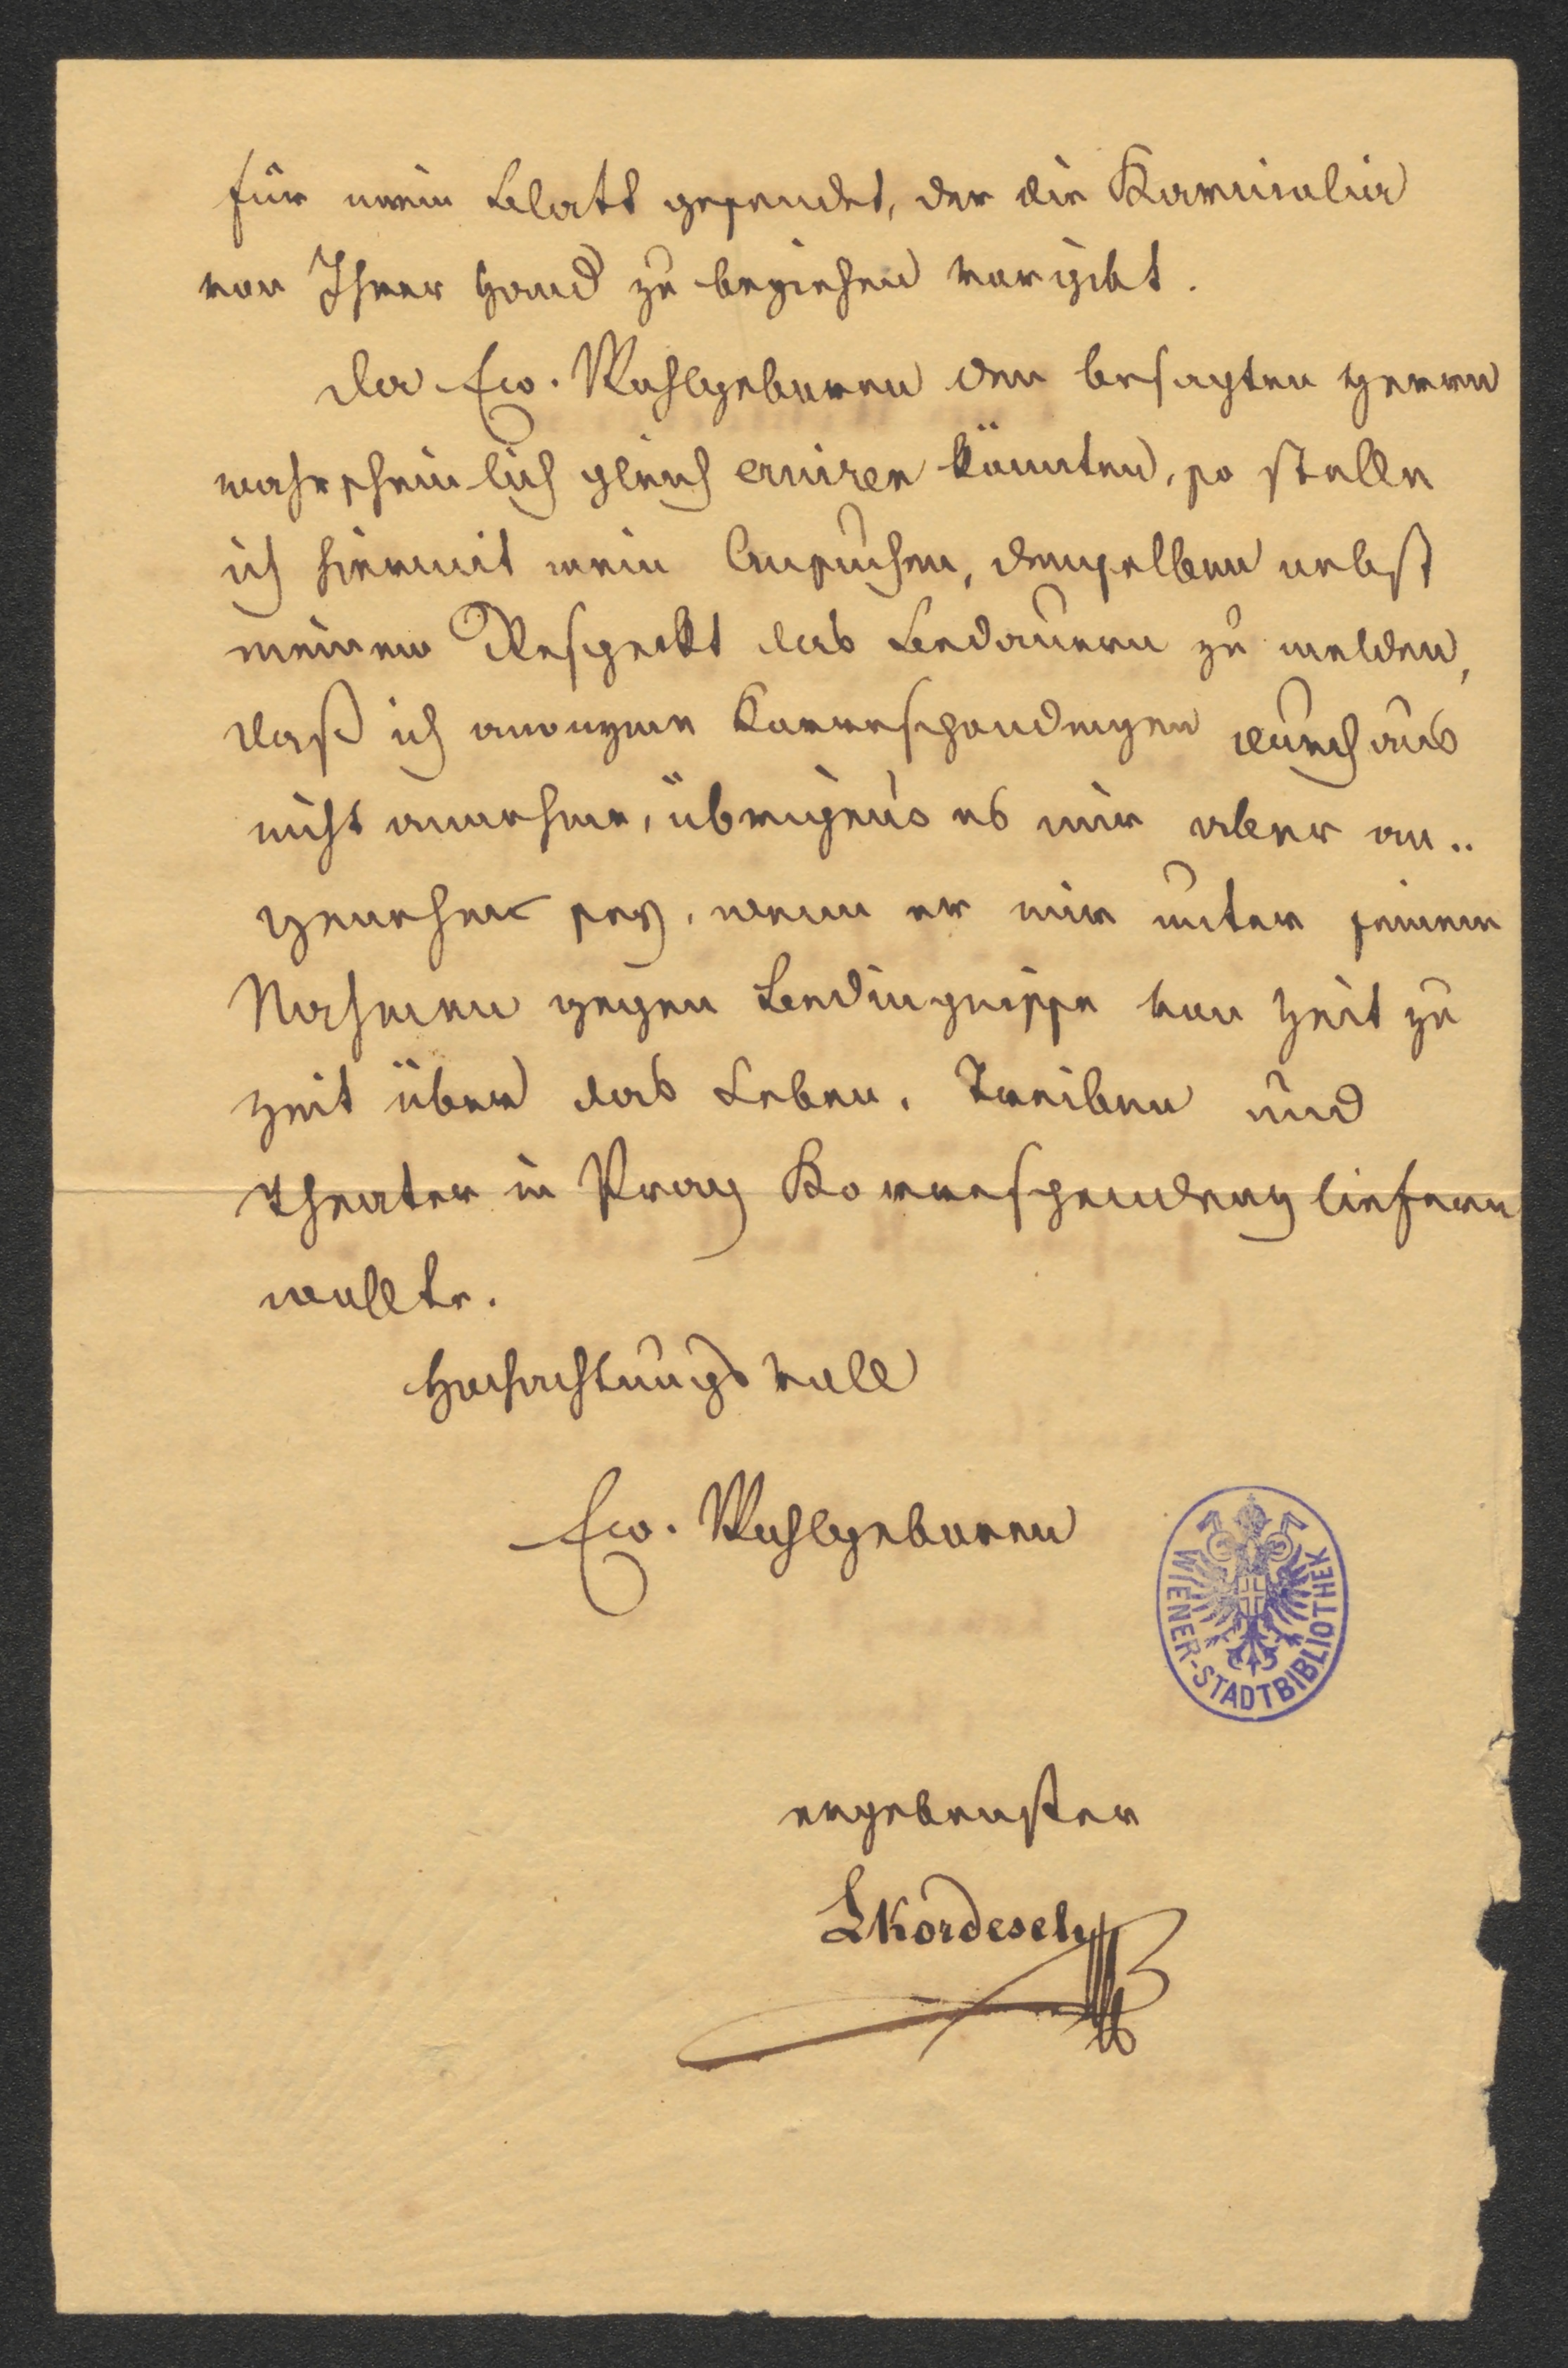 für mein Blatt gesendet, der die Karniolia
von Ihrer Hand zu beziehen vorgibt.
Da Ew. Wohlgeboren den besagten Herrn
wahrscheinlich gleich eruiren könnten, so stelle
ich hiermit mein Ansuchen, demselben nebst
meinem Respeckt das Bedauern zu melden,
daß ich anonyme Korrespondenzen durchaus
nicht annehme, übrigens es mir aber an..
genehm sey, wenn er mir unter seinem
Nahmen gegen Bedingnisse von Zeit zu
Zeit über das Leben, Treiben und
Theater in Prag Korrespondenz liefern
wollte.
Hochachtungsvoll
Ew. Wohlgeboren
WIENER-STADTBIBLIOTHEK
ergebenster
LKordesch